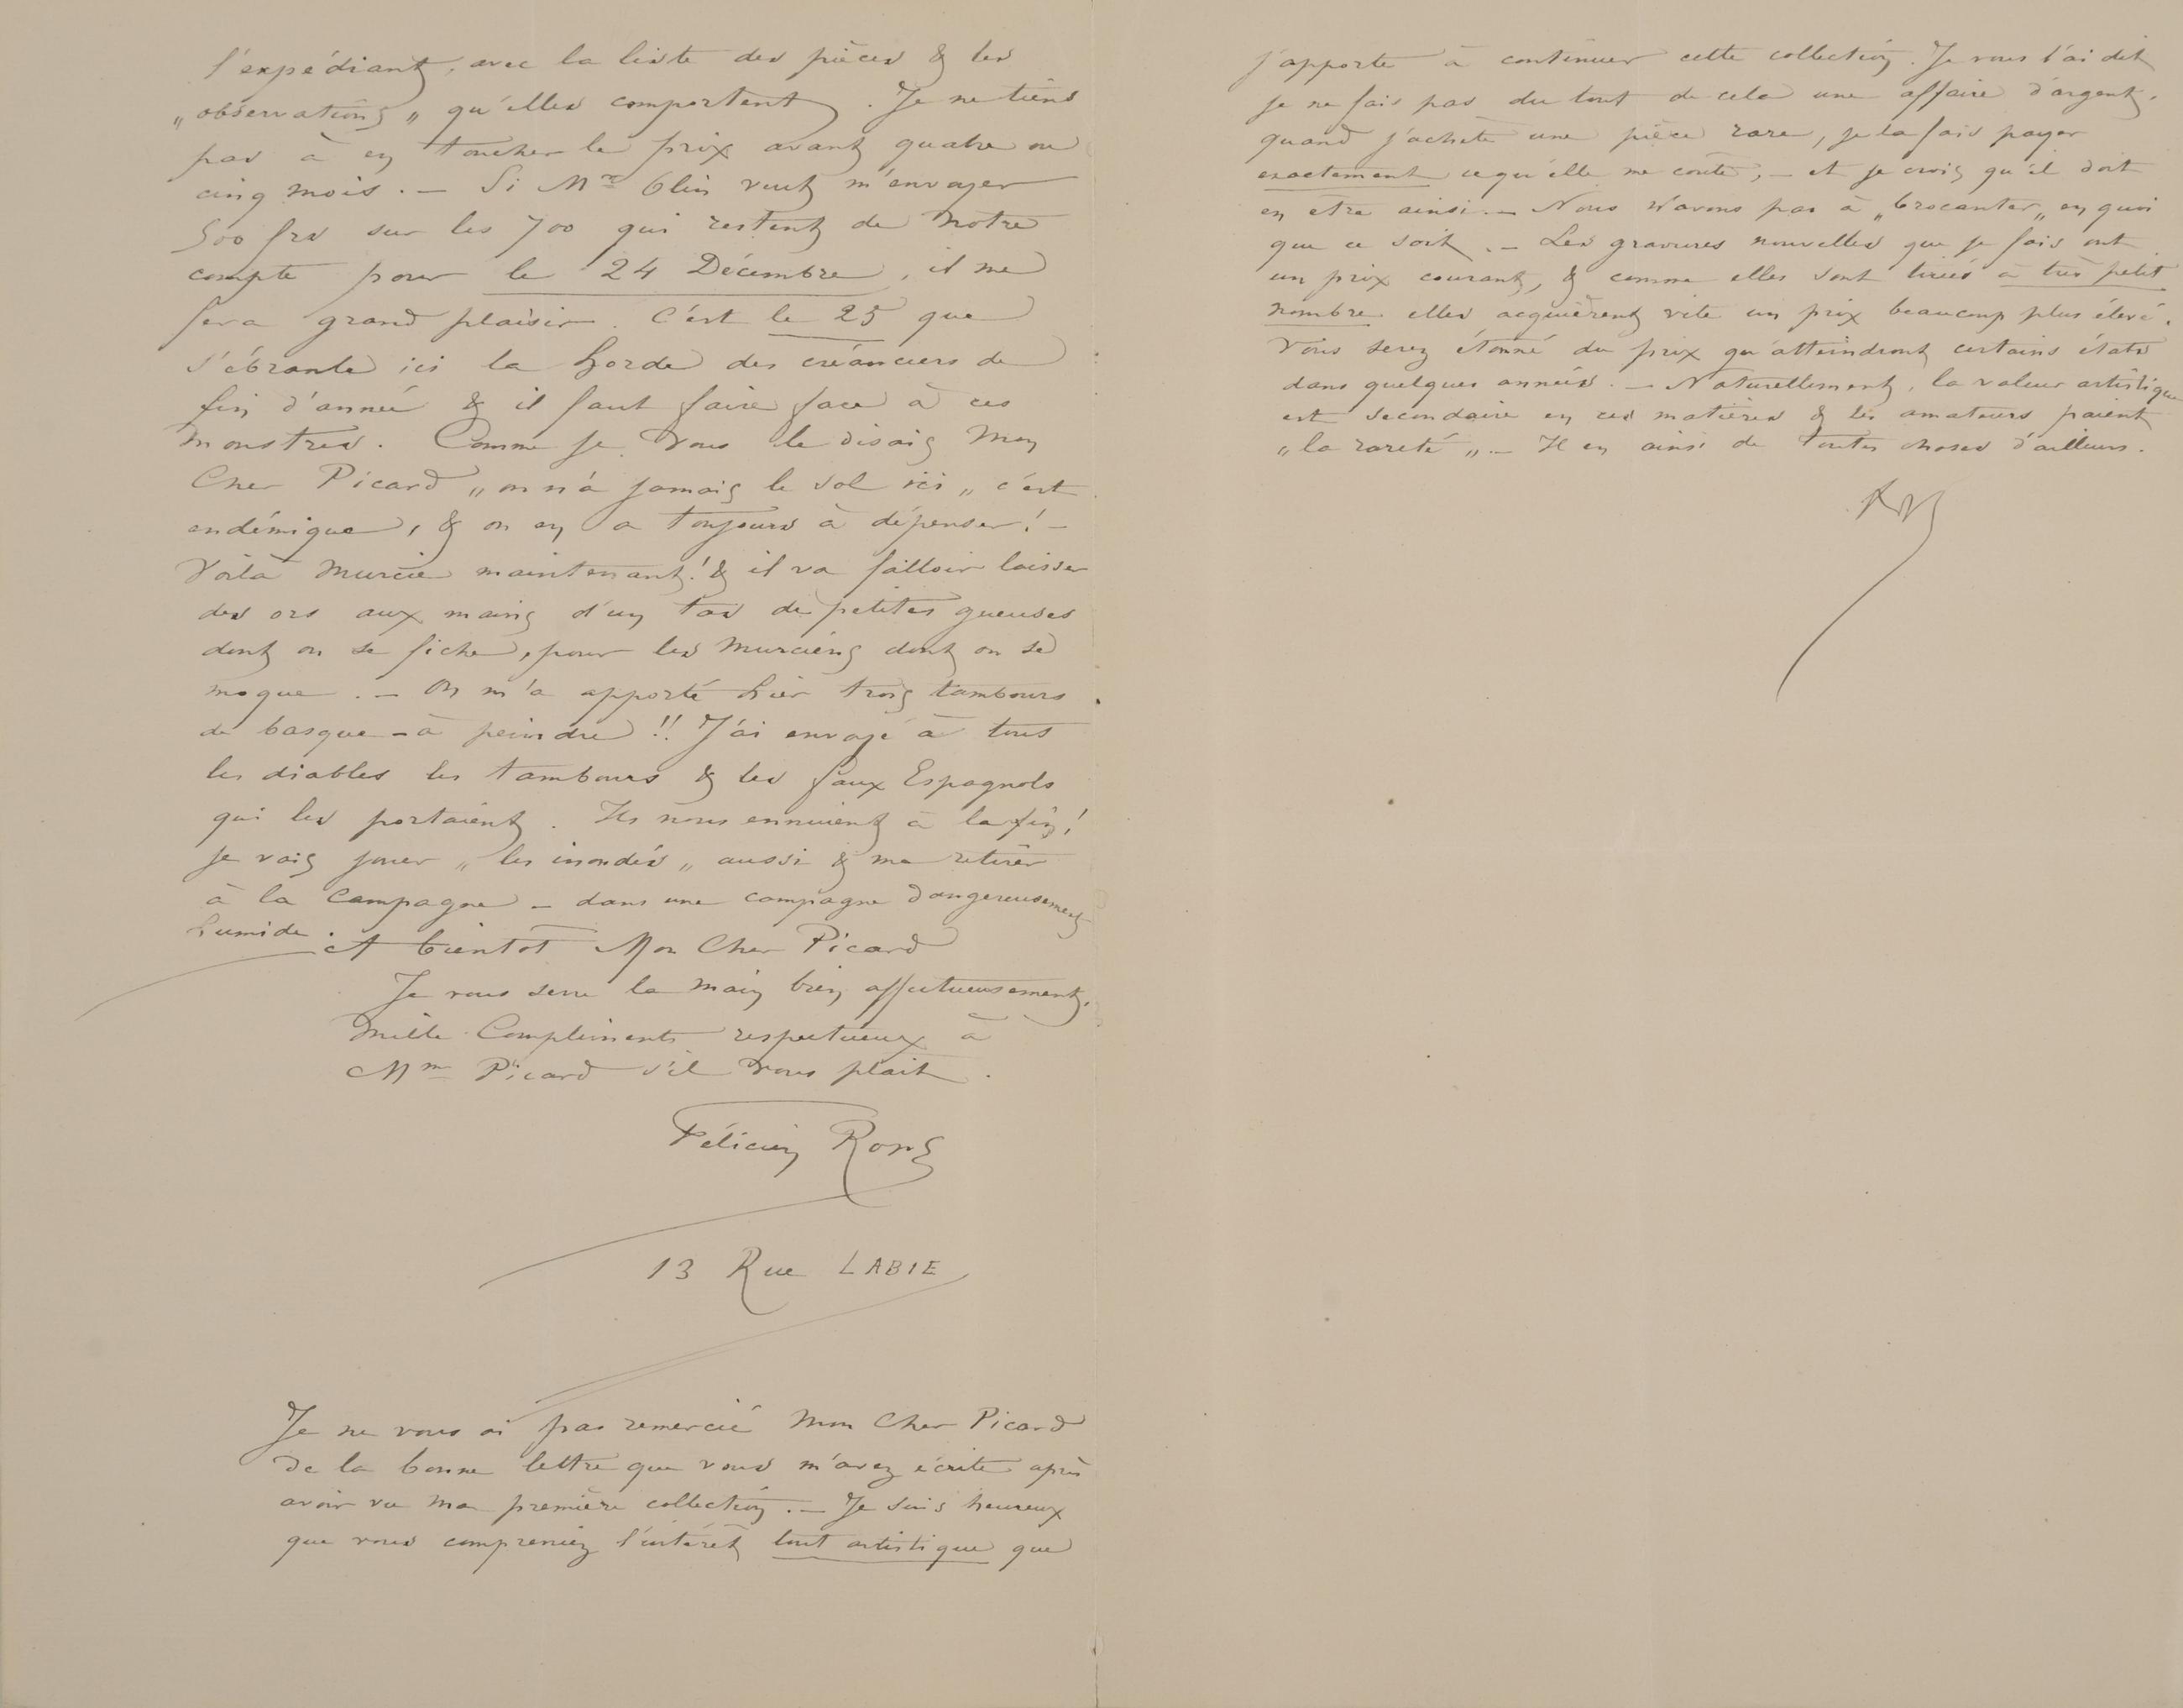 l'expédiant, avec la liste des pièces & les
„observations„ qu'elles comportent. Je ne tiens
pas à en toucher le prix avant quatre ou
cinq mois. – Si Mr Olin veut m'envoyer
500 frs sur les 700 qui restent de notre
compte pour le 24 Décembre, il me
fera grand plaisir. C'est le 25 que
s'ébranle ici la horde des créanciers de
fin d'année & il faut faire face à ces
monstres. Comme je vous le disais Mon
Cher Picard „on n'a jamais le sol ici„ c'est
endémique, & on en a toujours à dépenser! –
Voilà Murcie maintenant! & il va falloir laisser
des ors aux mains d'un tas de petites gueuses
dont on se fiche, pour les Murciens dont on se
moque. – On m'a apporté hier trois tambours
de basque – à peindre!! J'ai envoyé à tous
les diables les tambours & les faux Espagnols
qui les portaient. Ils nous ennuient à la fin!
Je vais jouer „les inondés„ aussi & me retirer
à la Campagne – dans une campagne dangereusement
humide. A bientôt Mon Cher Picard
Je vous serre la main bien affectueusement.
Mille Compliments respectueux à
Mme Picard s'il vous plait.
Félicien Rops
13 Rue LABIE
Je ne vous ai pas remercié Mon Cher Picard
de la bonne lettre que vous m'avez écrite après
avoir vu ma première collection. – Je suis heureux
que vous compreniez l'intérêt tout artistique que
j'apporte à continuer cette collection. Je vous l'ai dit
je ne fais pas du tout de cela une affaire d'argent.
quand j'achete une pièce rare, je la fais payer
exactement ce qu'elle me coute, – et je crois qu'il doit
en etre ainsi. – Nous n'avons pas à „brocanter„ en quoi
que ce soit. – Les gravures nouvelles que je fais ont
un prix courant, & comme elles sont tirées à très petit
nombre elles acquièrent vite un prix beaucoup plus élevé.
Vous serez étonné du prix qu'atteindront certains états
dans quelques années. – Naturellement, la valeur artistique
est secondaire en ces matières & les amateurs paient
„la rareté„ – Il en ainsi de toutes choses d'ailleurs.